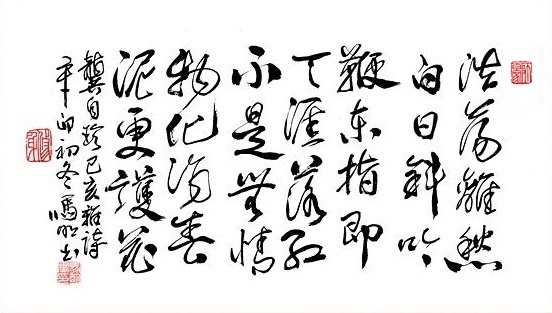 浩荡離愁
白日斜吟
鞭东指即
天涯落红
不是無情
物化为春
泥更護花
龔自珍己亥雜詩
辛卯初冬馮书